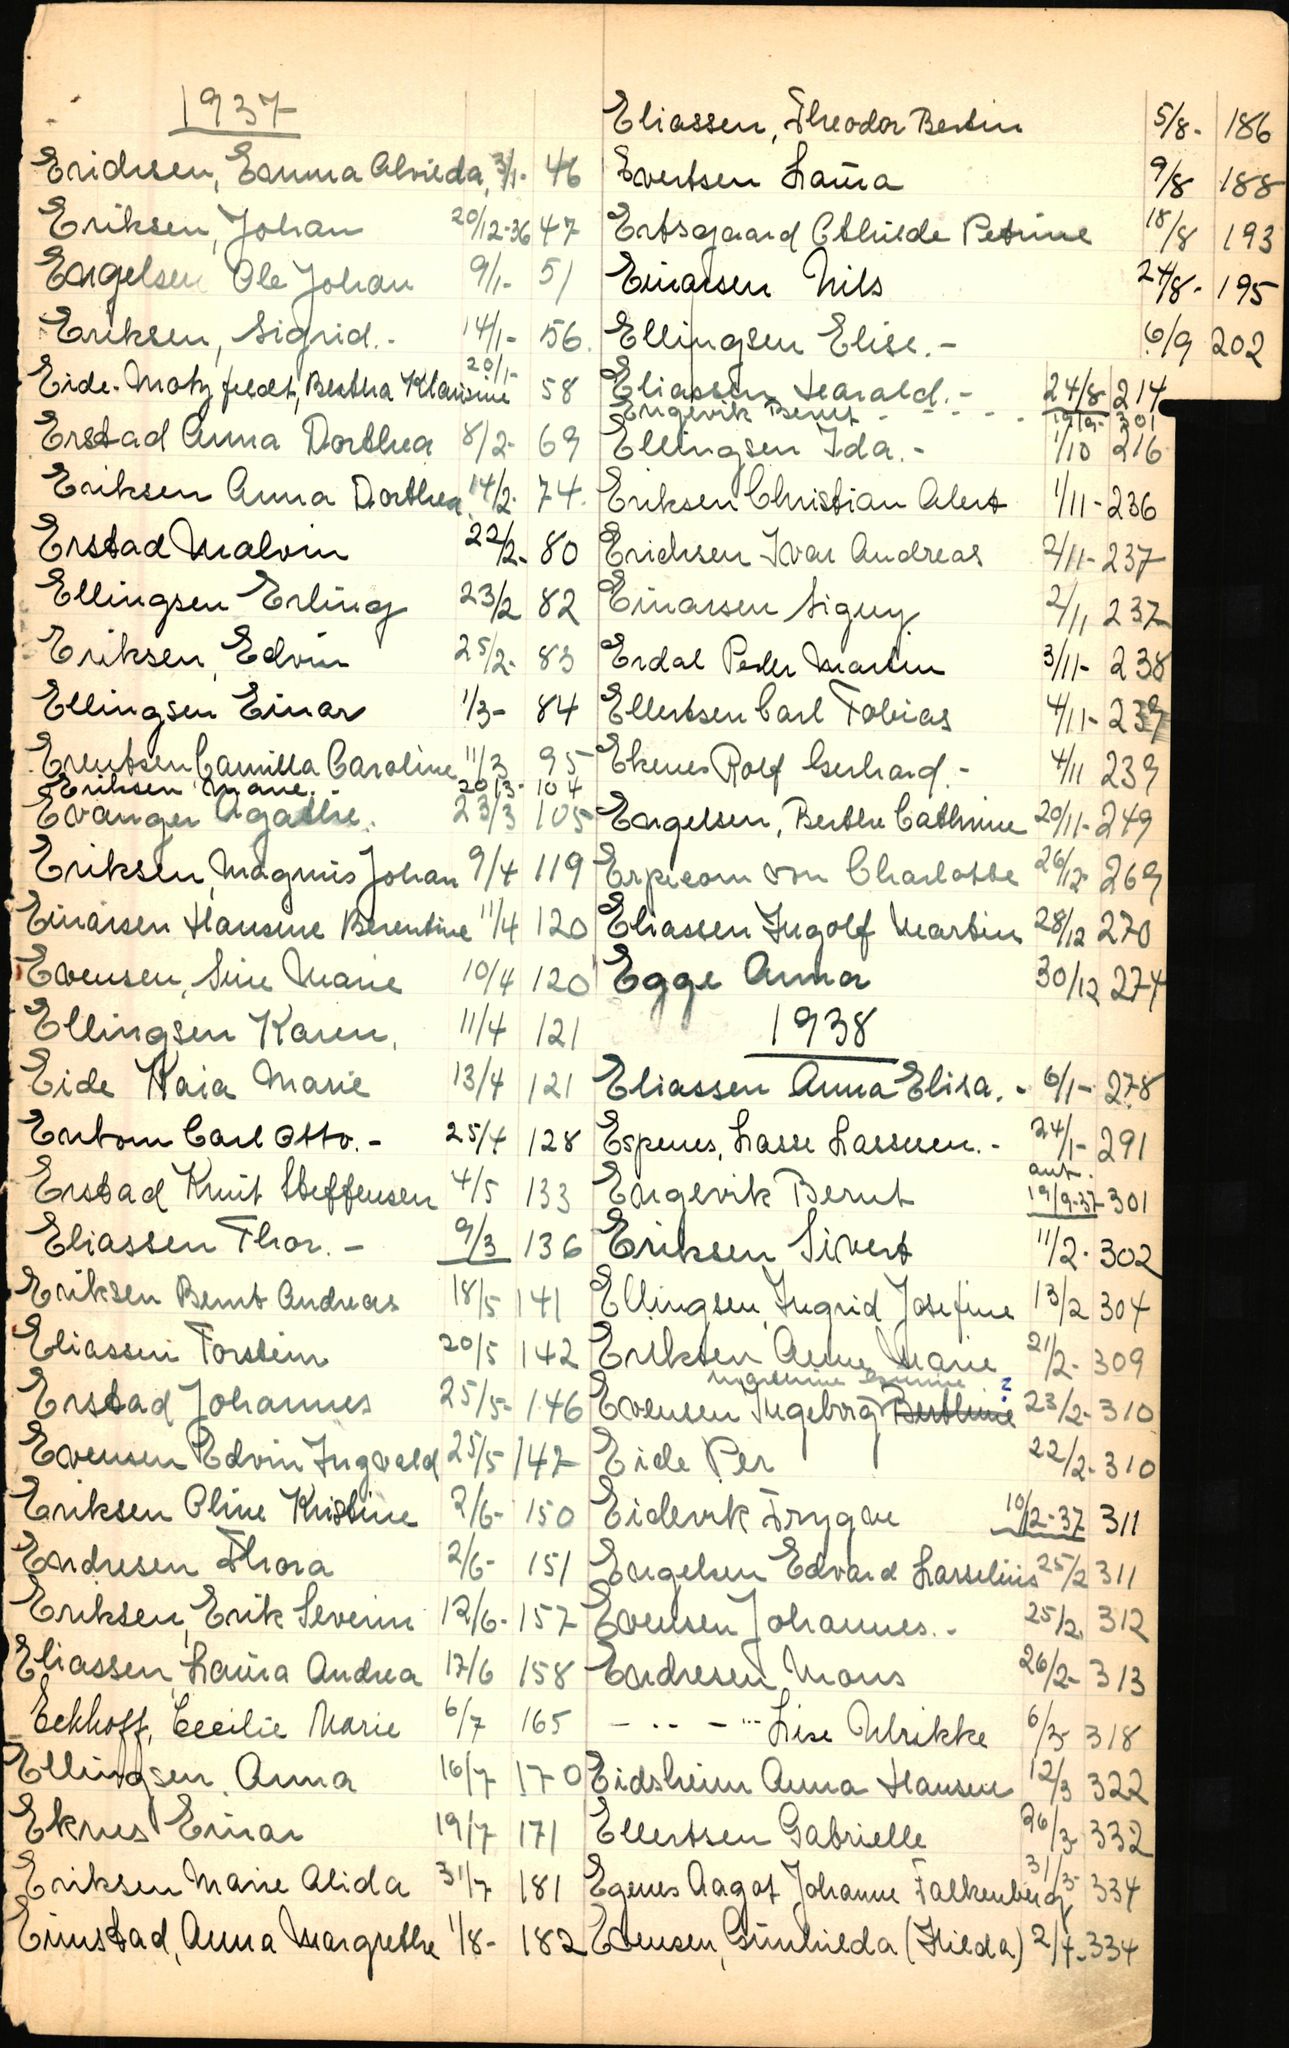 1937
Erichsen, Emma Alvilda, 3/1- 46
Eriksen, Johan 20/12-36 47
Engelsen Ole Johan 9/1- 51
Eriksen, Sigrid.- 14/1- 56.
Eide-Motzfeldt, Bertha Klausine 20/1- 58
Erstad Anna Dorthea 8/2- 69
Eriksen Anna Dorthea 14/2- 74.
Erstad Malvin 22/2- 80
Ellingsen Erling 23/2 82
Eriksen, Edvin 25/2- 83
Ellingsen Einar 1/3- 84
Evertsen Camilla Caroline 11/3 95
Eriksen Marie.- 20/3- 104
Evanger Agathe. 23/3 105
Eriksen, Magnus Johan 9/4 119
Einarsen Hansine Berentine 11/4 120
Evensen, Sine Marie 10/4 120
Ellingsen Karen, 11/4 121
Eide Kaia Marie 13/4 121
Carl Otto.- 25/4 128
Erstad Knut Steffensen 4/5 133
Eliassen Thor.- 9/3 136
Eriksen Bernt Andreas 18/5 141
Eliassen Torstein 20/5 142
Erstad Johannes 25/5- 146
Evensen Edvin Ingvald 25/5 147
Eriksen Oline Kristine 2/6- 150
Endresen Thora 2/6- 151
Eriksen, Erik Severin 12/6- 157
Eliassen, Laura Andrea 17/6 158
Eckhoff, Cecilie Marie 6/7 165
Ellingsen Anna 16/7 170
Eknes Einar 19/7 171
Eriksen Marie Alida 31/7 181
Einstad, Anna Margrethe 1/8- 182
Eliassen, Theodor Bertin 5/8- 186
Evertsen Laura 9/8 188
Ertsgaard Othilde Petrine 18/8 193
Einarsen Nils 24/8- 195
Ellingsen Elise.- 6/9 202
Eliassen Harald.- 24/8 214
Engevik Bernt - - - - 19/9- 301
Ellingsen Ida.- 1/10 216
Eriksen Christian Alert 1/11- 236
Erichsen Ivar Andreas 2/11- 237
Einarsen Signy 2/11 237
Erdal Peder Martin 3/11- 238
Ellertsen Carl Tobias 4/11- 239
Ekenes Rolf Gerhard.- 4/11 239
Engelsen, Berthe Cathrine 20/11- 249
Erpecom von Charlotte 26/12- 269
Eliassen Ingolf Martin 28/12 270
Egge Anna 30/12 274
1938
Eliassen Anna Elisa.- 6/1- 278
Espenes, Lasse Lassesen.- 24/1- 291
ant.
Engevik Bernt 19/9-37 301
Eriksen Sivert 11/2- 302
Ellingsen, Ingrid Josefine 13/2 304
Eriksen Anne Marie 21/2- 309
?
Evensen Ingeborg Berthine 23/2- 310
Eide Per 22/2- 310
Eidevik Trygve 10/2-37 311
Engelsen Edvard Lasselius 25/2 311
Evensen Johannes.- 25/2, 312
Endresen Mons 26/2- 313
- .. - ... Lise Ulrikke 6/3- 318
Eidsheim Anna Hansen 12/3 322
Ellertsen Gabrielle 26/3- 332
Egenes Aagot Johanne Falkenberg 31/3- 334
Evensen, Gunhilda (Hilda) 2/4- 334